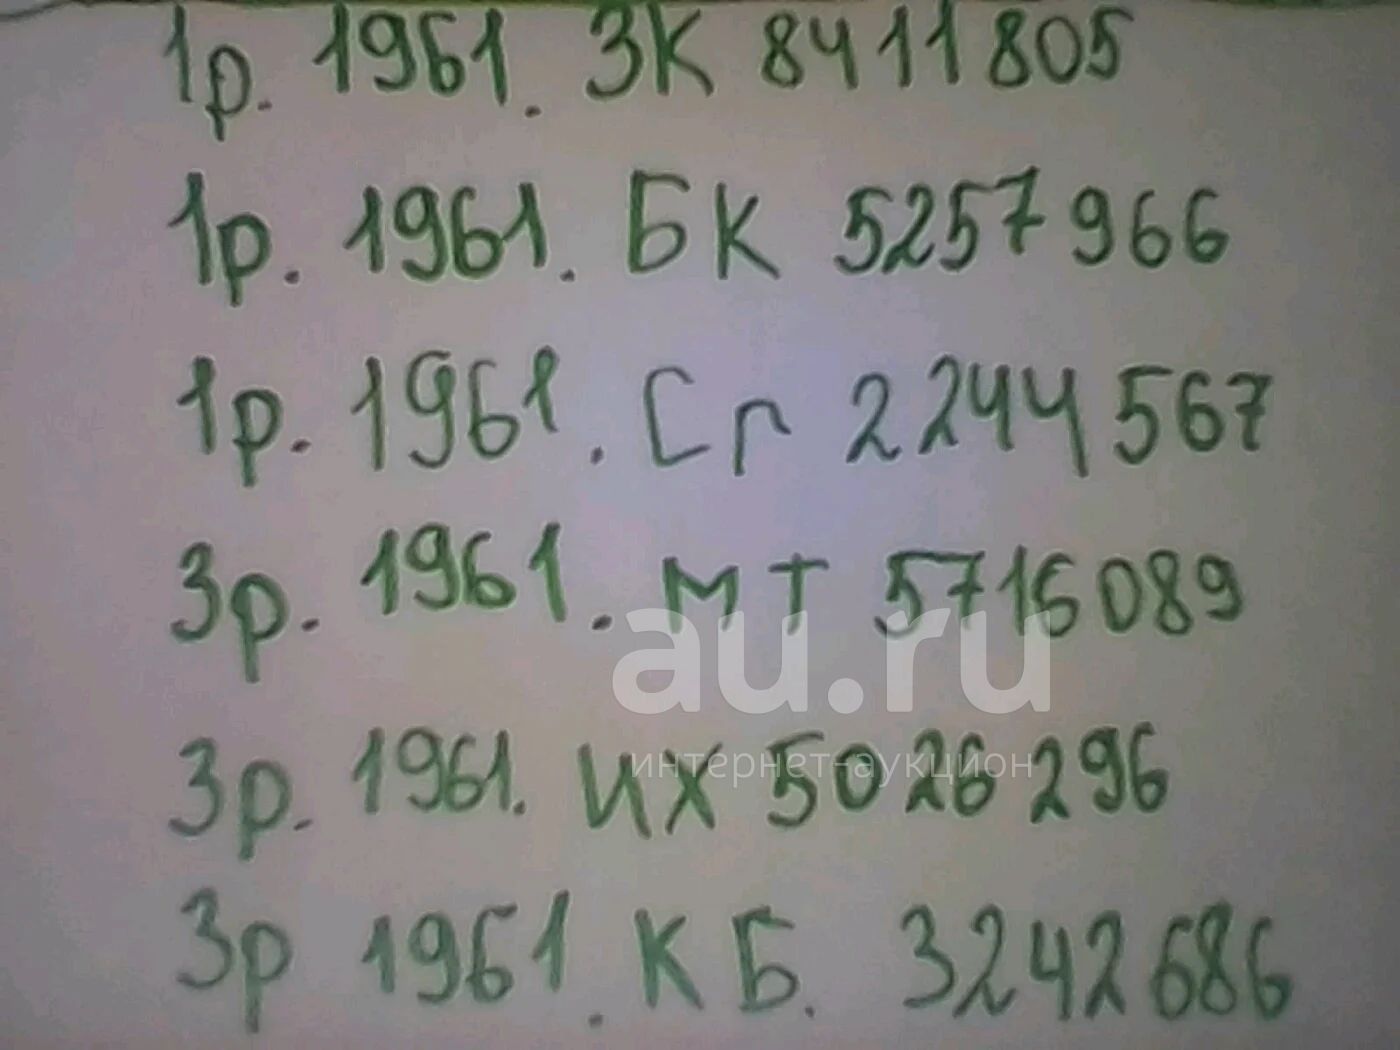 1р. 1961. ЗК 8411805
1р. 1961. БК 5257966
1р. 1961. Сг 2244567
3р. 1961. МТ 5716089
au.ru
интернет-аукцион
3р. 1961. ИХ 5026296
3р 1961. КБ. 3242686